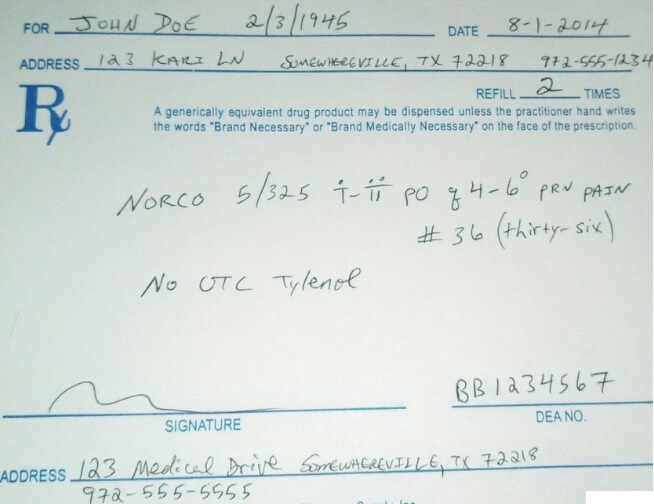 FOR JOHN DOE 2/3/1945 DATE 8-1-2014
ADDRESS 123 KARI LN SOMEWHEREVILLE, TX 72218 972-555-1234
REFILL 2 TIMES
Rx
A generically equivalent drug product may be dispensed unless the practitioner hand writes
the words "Brand Necessary" or "Brand Medically Necessary" on the face of the prescription.
NORCO 5/325 i-ii PO q 4-6° PRN PAIN
# 36 (thirty-six)
No OTC Tylenol
BB1234567
SIGNATURE DEA NO.
ADDRESS 123 Medical Drive SOMEWHEREVILLE, TX 72218
972-555-5555